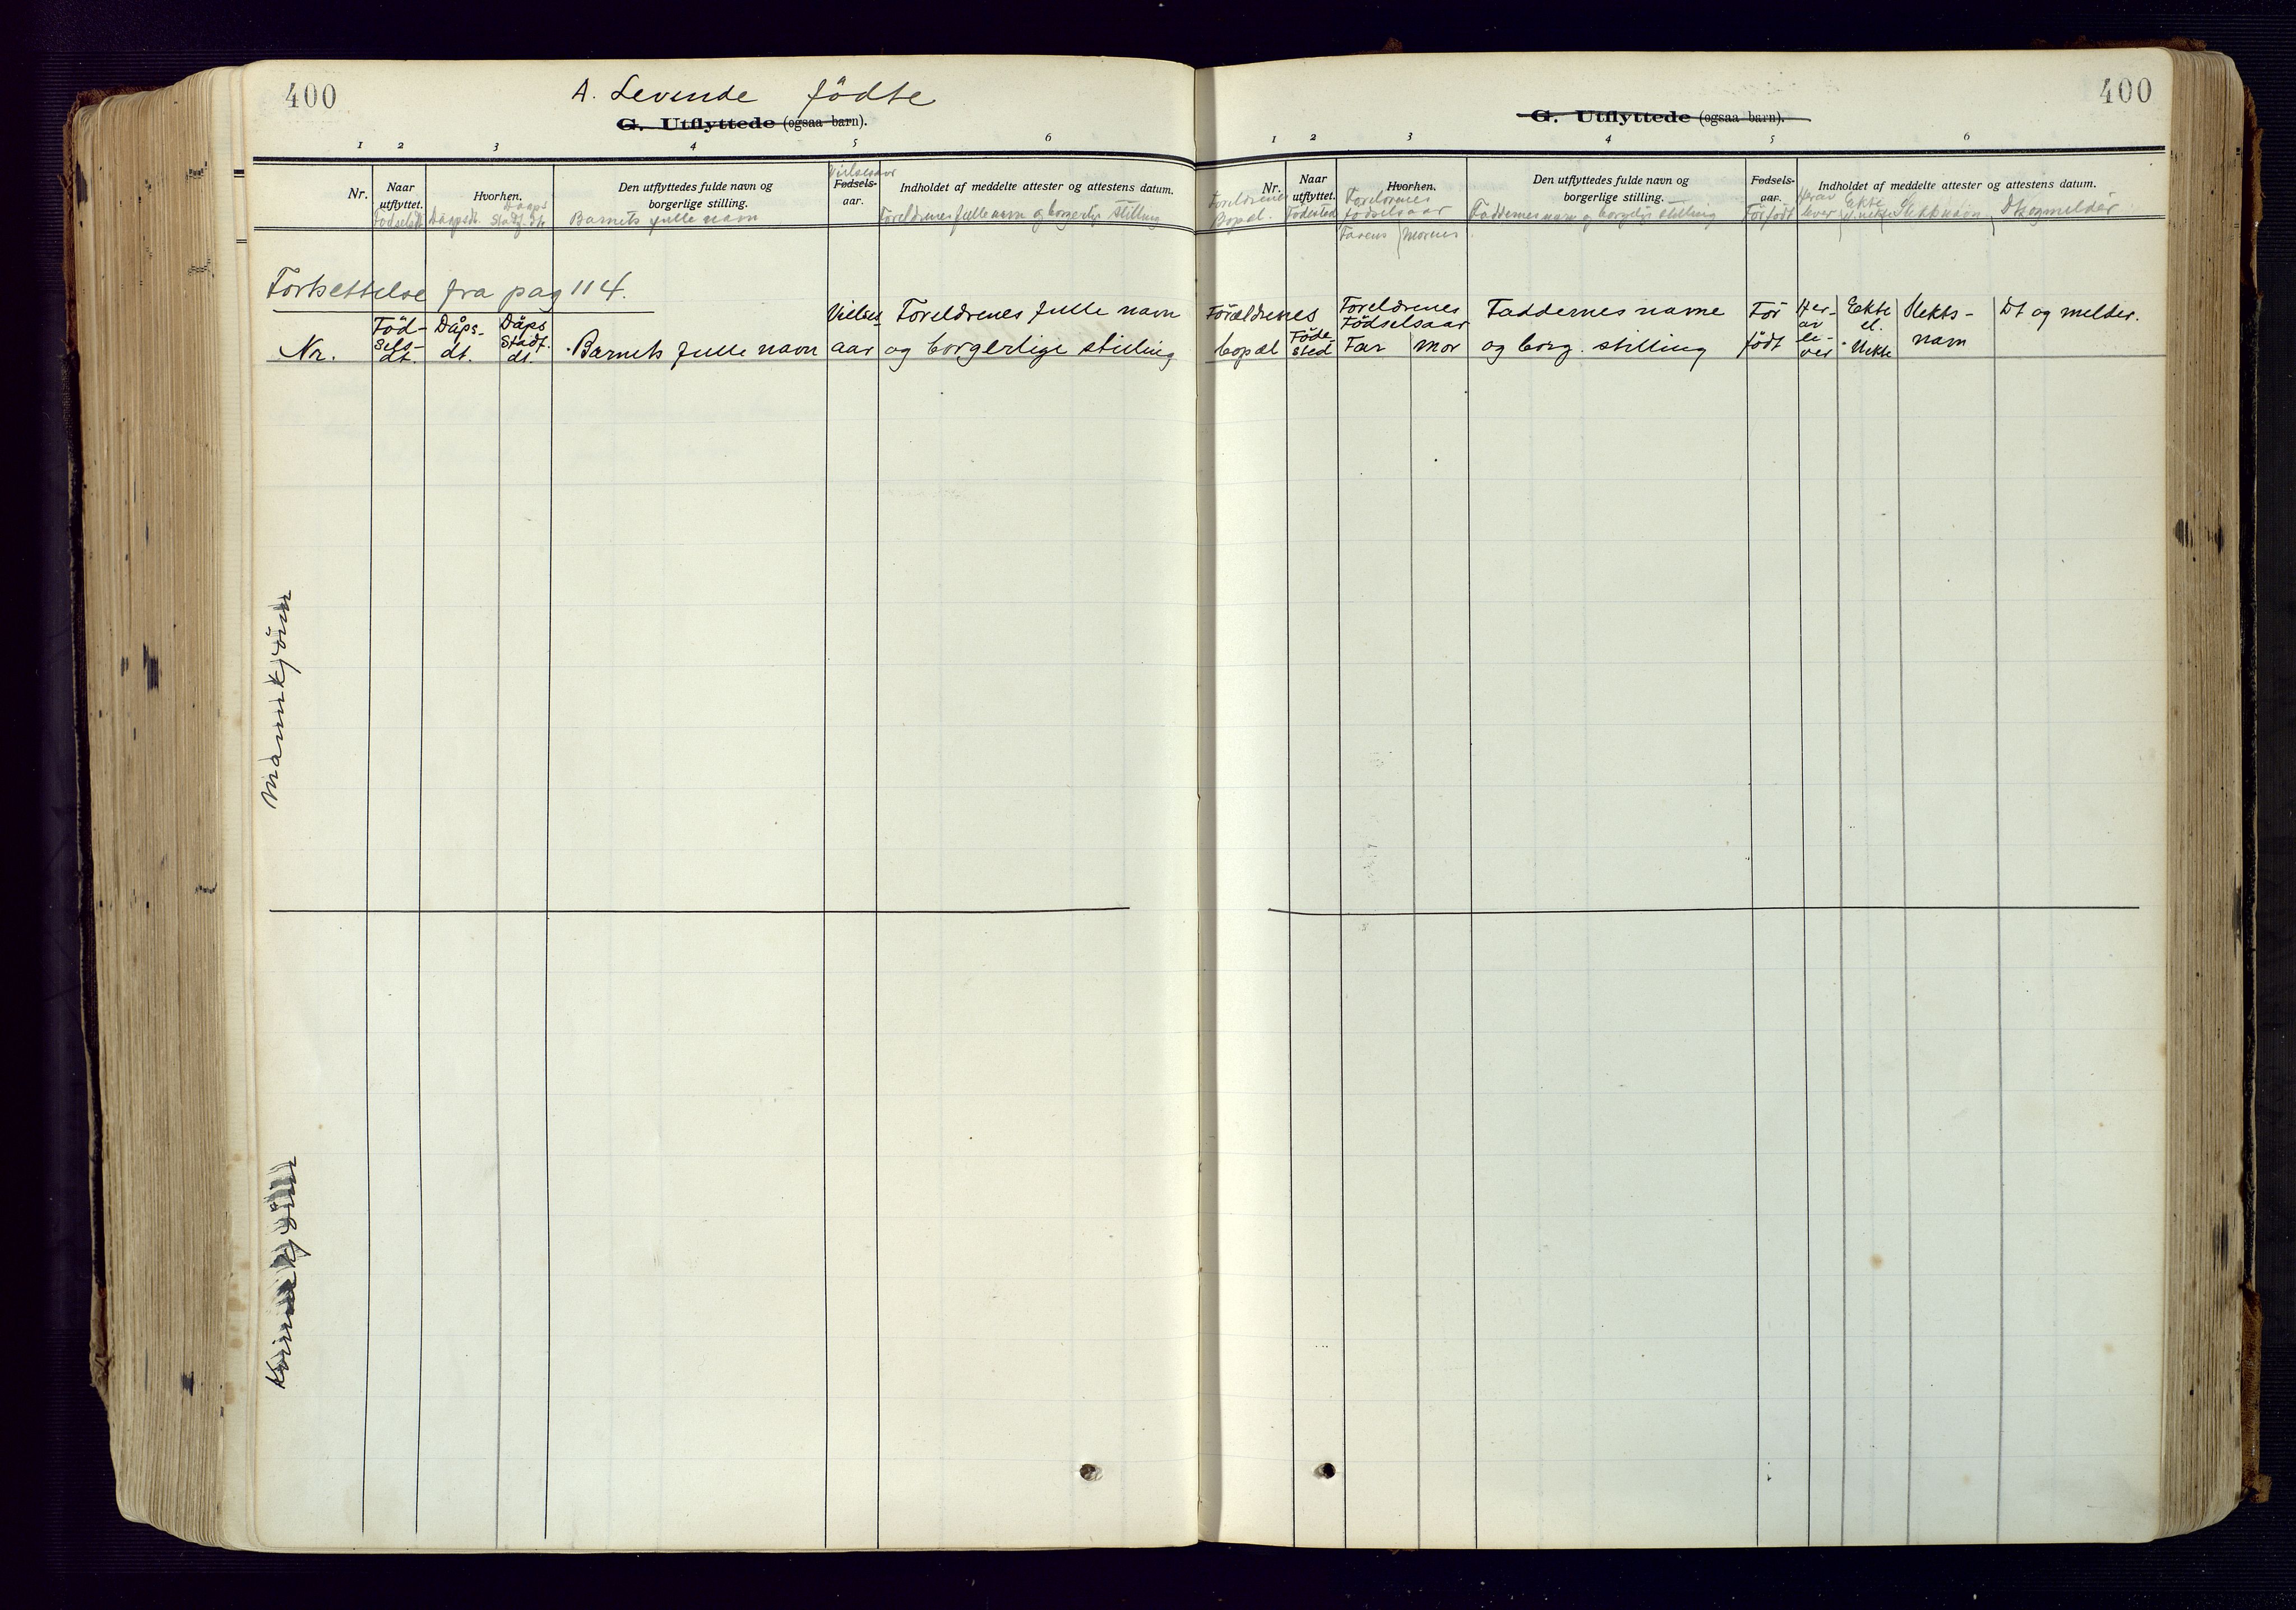 400
A. Levende födte
G. Utflyttede (ogsaa barn).
1 2 3 4 5 6
Nr.
Naar utflyttet.
Födselsdt.
Hvorhen.
Dåpsdt.
Dåps
Stadf. dt.
Den utflyttedes fulde navn og
borgerlige stilling.
Barnets fulle navn
Vielsesaar
Fødsels-
aar.
Indholdet af meddelte attester og attestens datum.
Foreldrenes fulle navn og borgerlige stilling
Fortsettelse fra pag 114.
Nr.
Föd-
sels-
dt.
Dåps-
dt.
Dåps
Stadf.
dt.
Barnets fulle navn
Vielses
aar
Foreldrenes fulle navn
og borgerlige stilling
Mannkjönn
Kvinnekjönn
400
G. Utflyttede (ogsaa barn).
1 2 3 4 5 6
Nr.
Foreldrenes
Bopæl.
Naar
utflyttet.
Födested
Hvorhen.
Foreldrenes
födselsaar
Farens Morens
Den utflyttedes fulde navn og
borgerlige stilling.
Faddernes navn og borgerlig stilling
Fødsels-
aar.
Förfödt
Indholdet af meddelte attester og attestens datum.
Herav
lever
Ekte
Slektsnavn
Dt og melder
Foreldrenes
bopæl
Föde-
sted
Foreldrenes
Födselsaar
Far mor
Faddernes navne
og borg. stilling
För
födt
Her-
av
le-
ver
Ekte
el.
Uekte
Slekts-
navn
Dt og melder.